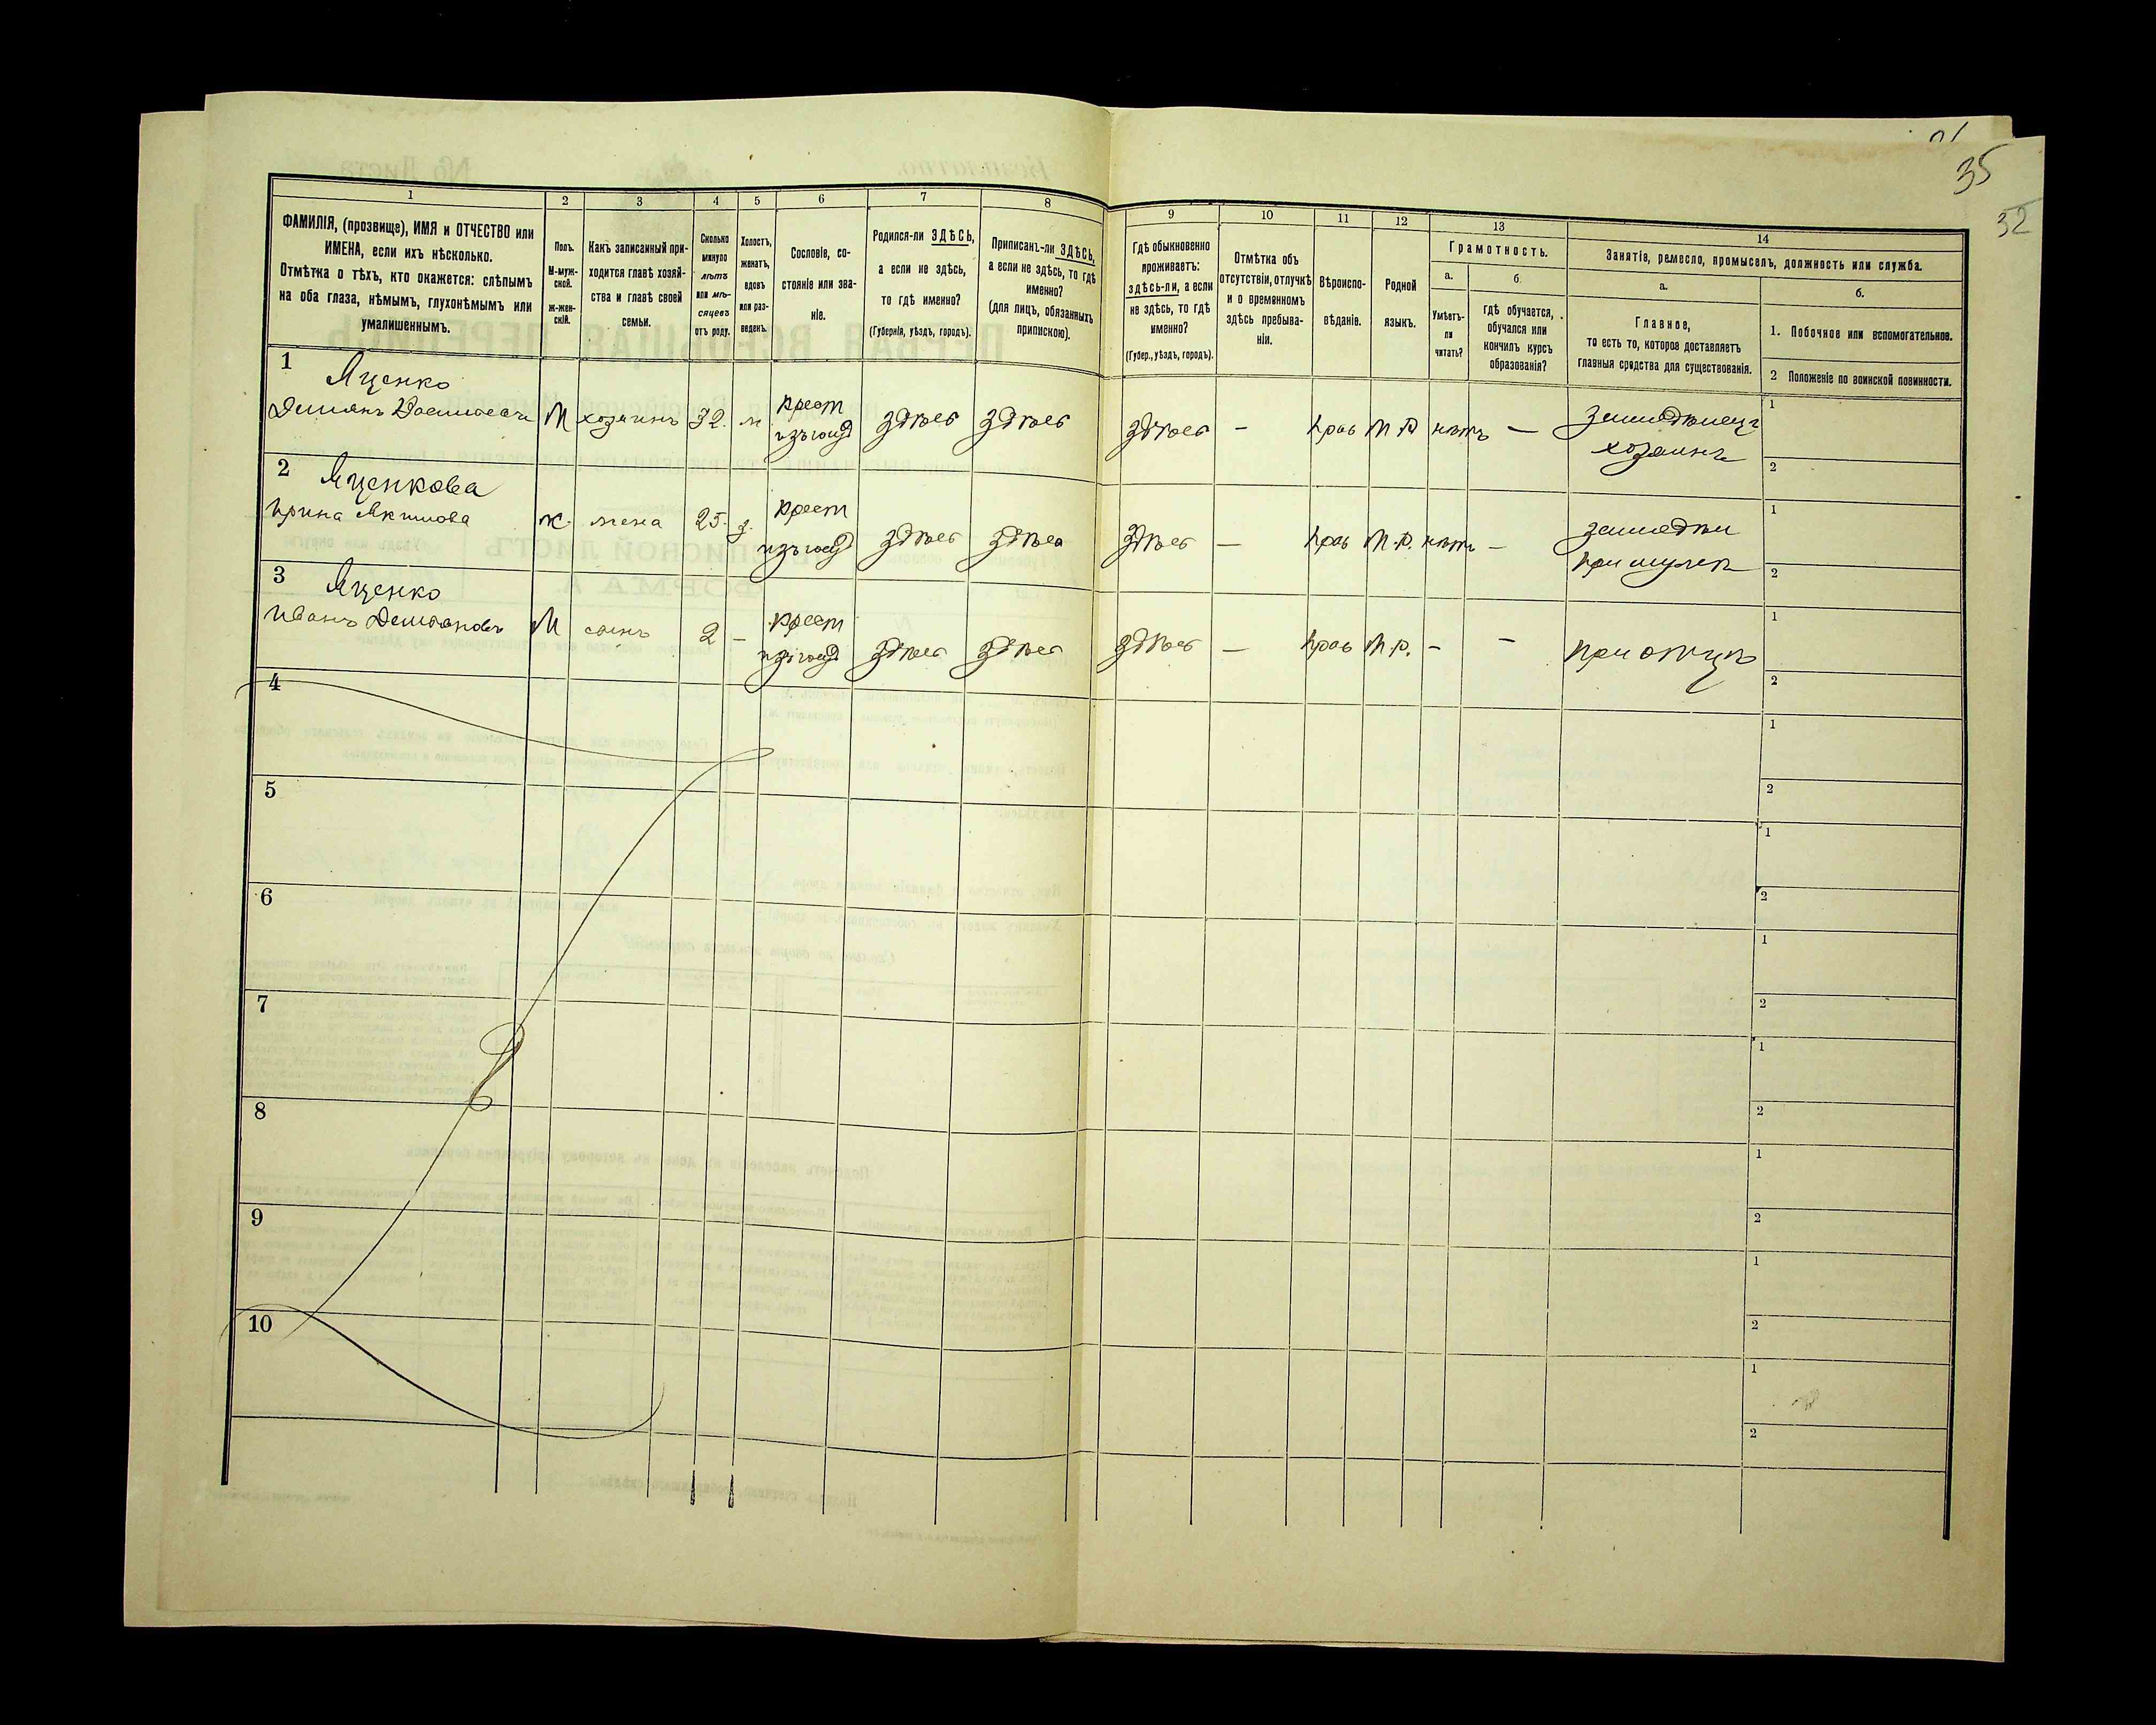 35
32
1
2
3
4
5
6
7
8
9
10
11
12
13
14
ФАМИЛІЯ, (прозвище), ИМЯ и ОТЧЕСТВО или
ИМЕНА, если ихъ нѣсколько.
Отмѣтка о тѣхъ, кто окажется: слѣпымъ
на оба глаза, нѣмымъ, глухонѣмымъ или
умалишеннымъ.
Полъ.
М-муж-
ской.
ж-жен-
скій.
Какъ записанный при-
ходится главѣ хозяй-
ства и главѣ своей
семьи.
Сколько
минуло
лѣтъ
или мѣ-
сяцевъ
отъ роду.
Холостъ,
женатъ,
вдовъ
или раз-
веденъ.
Сословіе, со-
стояніе или зва-
ніе.
Родился-ли ЗДѢСЬ,
а если не здѣсь,
то гдѣ именно?
(Губернія, уѣздъ, городъ).
Приписанъ-ли ЗДѢСЬ,
а если не здѣсь, то гдѣ
именно?
(для лицъ, обязанныхъ
припискою).
Гдѣ обыкновенно
проживаетъ:
здѣсь-ли, а если
не здѣсь, то гдѣ
именно?
(Губер., уѣздъ, городъ).
Отмѣтка объ
отсутствіи, отлучкѣ
и о временномъ
здѣсь пребыва-
ніи.
Вѣроиспо-
вѣданіе.
Родной
языкъ.
Грамотность.
а.
Умѣетъ-
ли
читать?
б.
гдѣ обучается,
обучался или
кончилъ курсъ
образованія?
Занятіе, ремесло, промыселъ, должность или служба.
а.
Главное,
то есть то, которое доставляетъ
главныя средства для существованія.
б.
1. Побочное или вспомогательное.
2 Положеніе по воинской повинности.
1 Яценко
Демянъ Васильевъ М хозяинъ 32. крест здѣсь здѣсь здѣсь — прав М Р нѣтъ — 1
хозяинъ 2
2 Яценкова
Ирина Акимова ж. жена 25. крест здѣсь здѣсь здѣсь — прав М.Р. нѣтъ — 1
при мужѣ 2
3 Яценко
Иванъ Демьяновъ М сынъ 2 — крест здѣсь здѣсь здѣсь — прав М.Р. — — при отцѣ 1
2
4 1
2
5 1
2
6 1
2
7 1
2
8 1
2
9 1
2
10 1
2